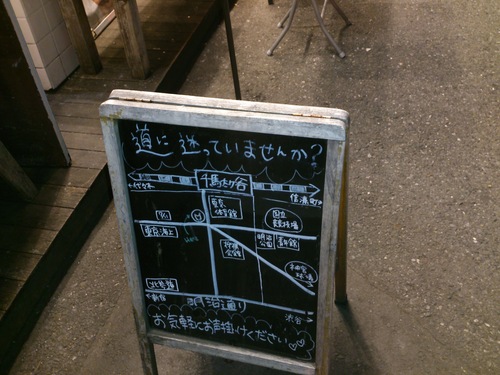 道に迷っていませんか?
千駄ヶ谷
代々木
信濃町
東京
体育館
国立
競技場
東京海上
明治
公園
青年館
神宮
球場
北参道
明治通り
渋谷
お気軽にお声掛けください